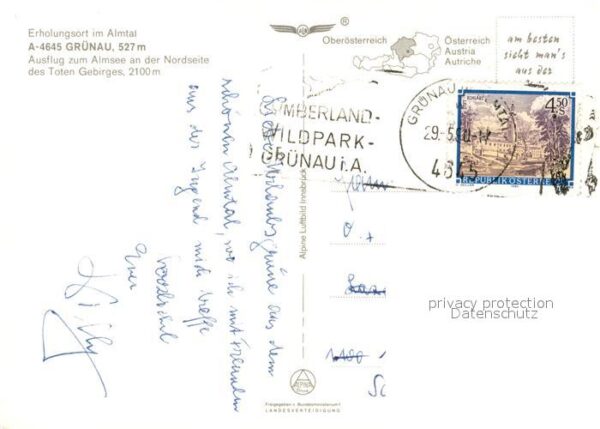 Erholungsort im Almtal
A-4645 GRÜNAU, 527 m
Ausflug zum Almsee an der Nordseite
des Toten Gebirges, 2100 m
Oberösterreich
Österreich
Austria
Autriche
am besten
sieht man's
aus der
CUMBERLAND-
WILDPARK-
GRÜNAU i. A.
GRÜNAU
29.-5.
4645
4.50
S
REPUBLIK ÖSTERREICH
Liebe Urlaubsgrüße aus dem
schönen Almtal, wo ich mit Freunden
aus der Jugend mich treffe
Herzlichst
Euer
Alpine Luftbild Innsbruck
privacy protection
Datenschutz
ALPINE
Freigegeben v. Bundesministerium f.
LANDESVERTEIDIGUNG